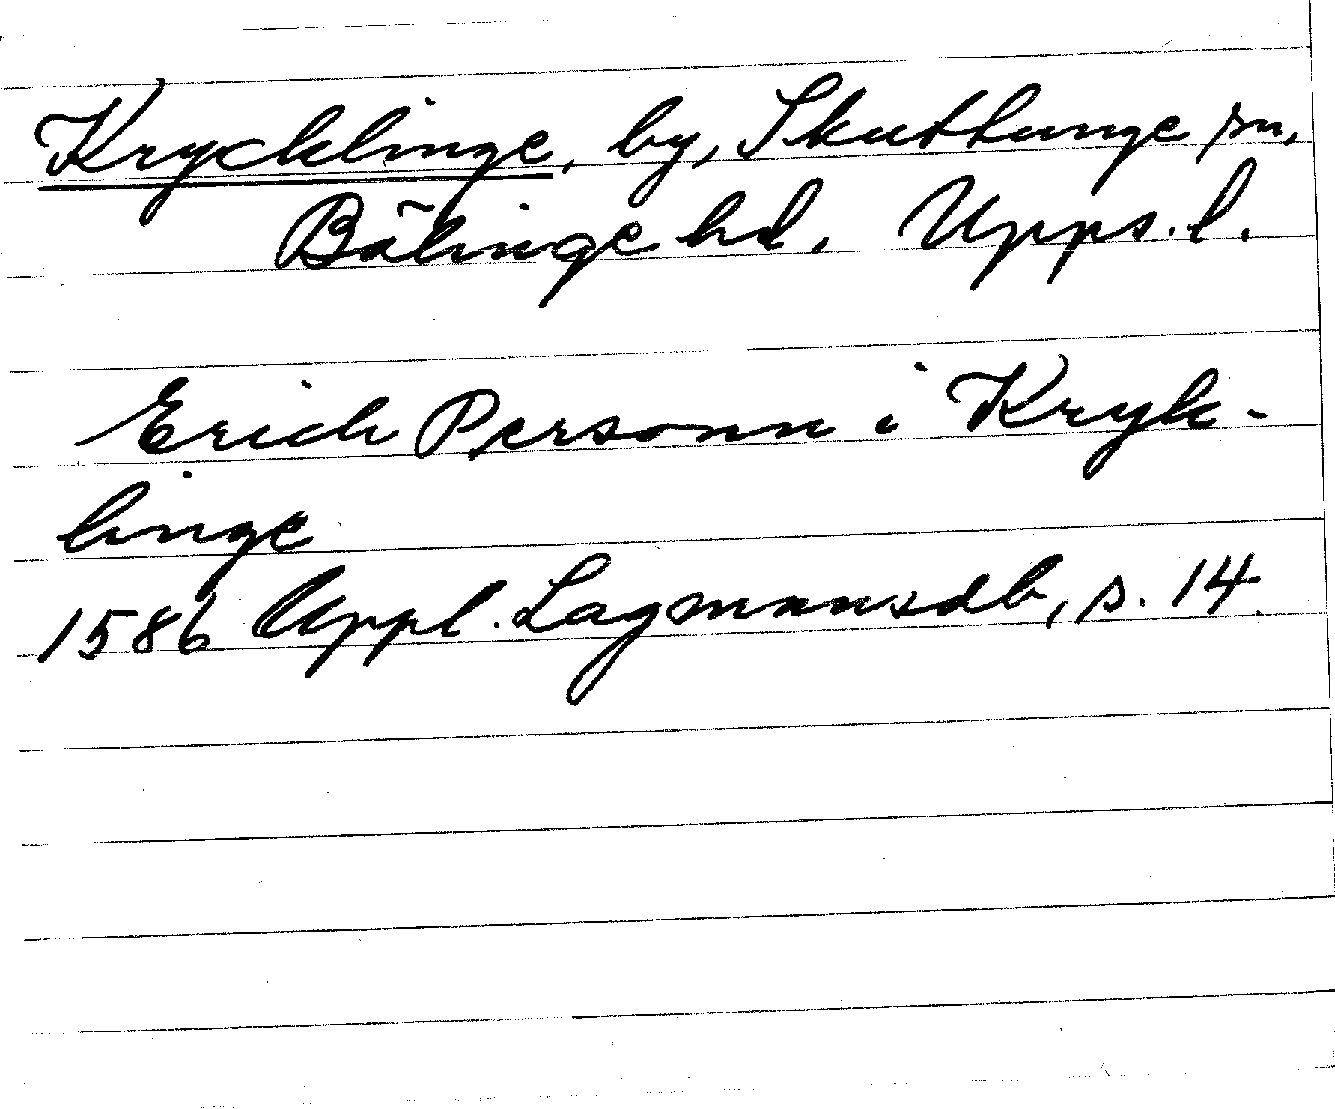 Krycklinge, by, Skuttunge sn,
Bälinge hd. Upps. l.
Erich Personn i Kryk-
linge
1586 Uppl. Lagmansdb, s. 14